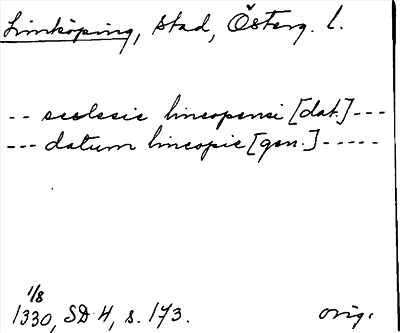 Linköping, stad, Österg. l.
-- ecclesie lincopensi [dat.] ---
--- datum lincopie [gen.] -----
1/8
1330, SD 4, s. 173.
orig.